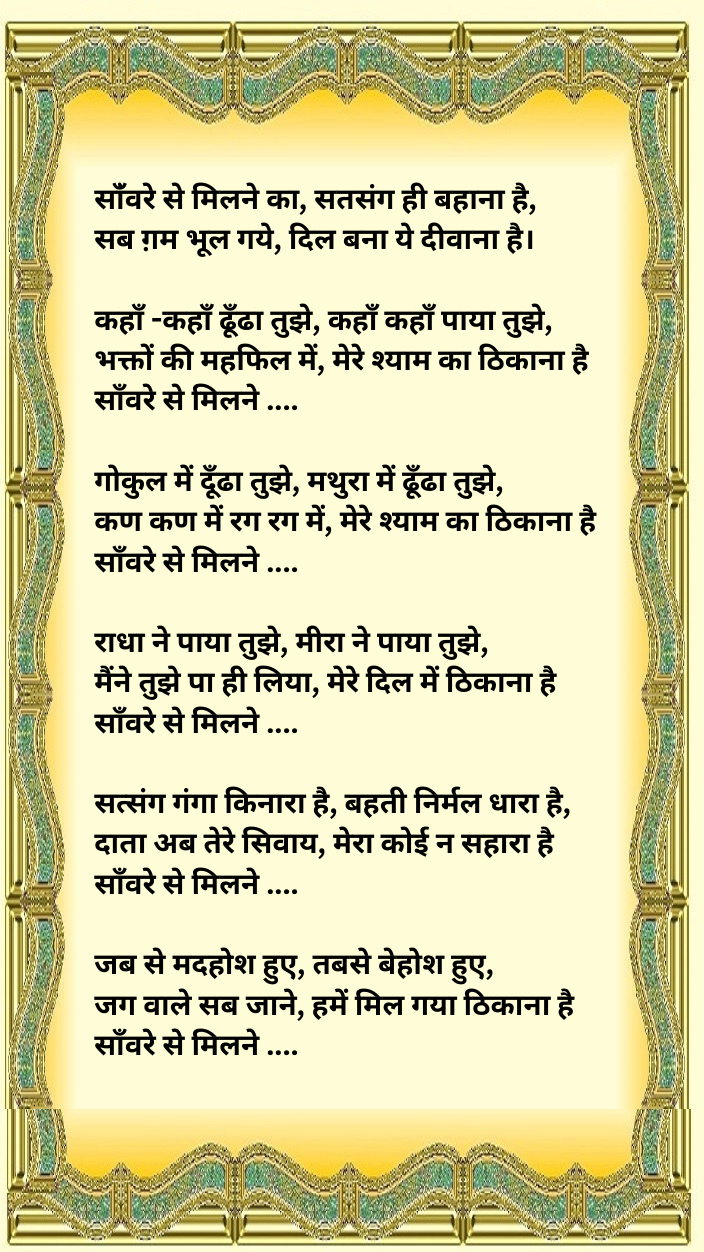 साँवरे से मिलने का, सतसंग ही बहाना है,
सब ग़म भूल गये, दिल बना ये दीवाना है।
कहाँ -कहाँ ढूँढा तुझे, कहाँ कहाँ पाया तुझे,
भक्तों की महफिल में, मेरे श्याम का ठिकाना है
साँवरे से मिलने ....
गोकुल में दूँढा तुझे, मथुरा में ढूँढा तुझे,
कण कण में रग रग में, मेरे श्याम का ठिकाना है
साँवरे से मिलने ....
राधा ने पाया तुझे, मीरा ने पाया तुझे,
मैंने तुझे पा ही लिया, मेरे दिल में ठिकाना है
साँवरे से मिलने ....
सत्संग गंगा किनारा है, बहती निर्मल धारा है,
दाता अब तेरे सिवाय, मेरा कोई न सहारा है
साँवरे से मिलने ....
जब से मदहोश हुए, तबसे बेहोश हुए,
जग वाले सब जाने, हमें मिल गया ठिकाना है
साँवरे से मिलने ....